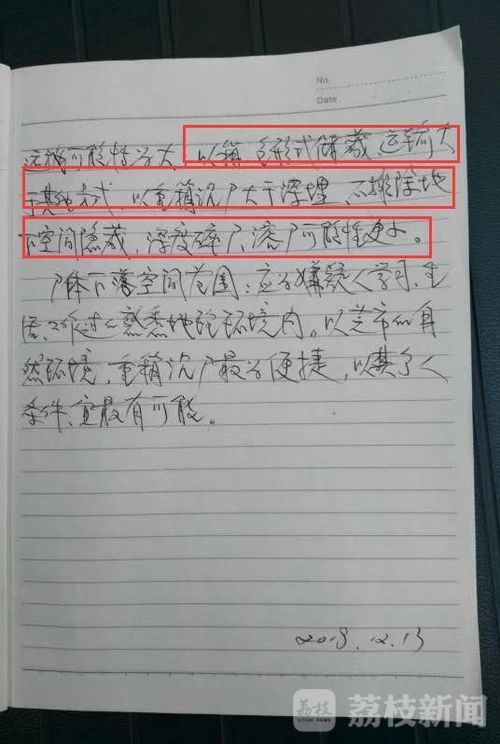 No.
Date
远抛可能性为大、以箱包形式储藏运输大
于其他方式，以重箱沉尸大于深埋，不排除地
下空间隐藏，深度碎尸、溶尸可能性更小。
尸体下落空间范围：应为嫌疑人学习、生
活、工作过之熟悉地域环境内。以芝市的自
然环境，重箱沉尸最为便捷，以其个人
条件、宜最有可能。
2019.12.13
荔枝
荔枝新闻